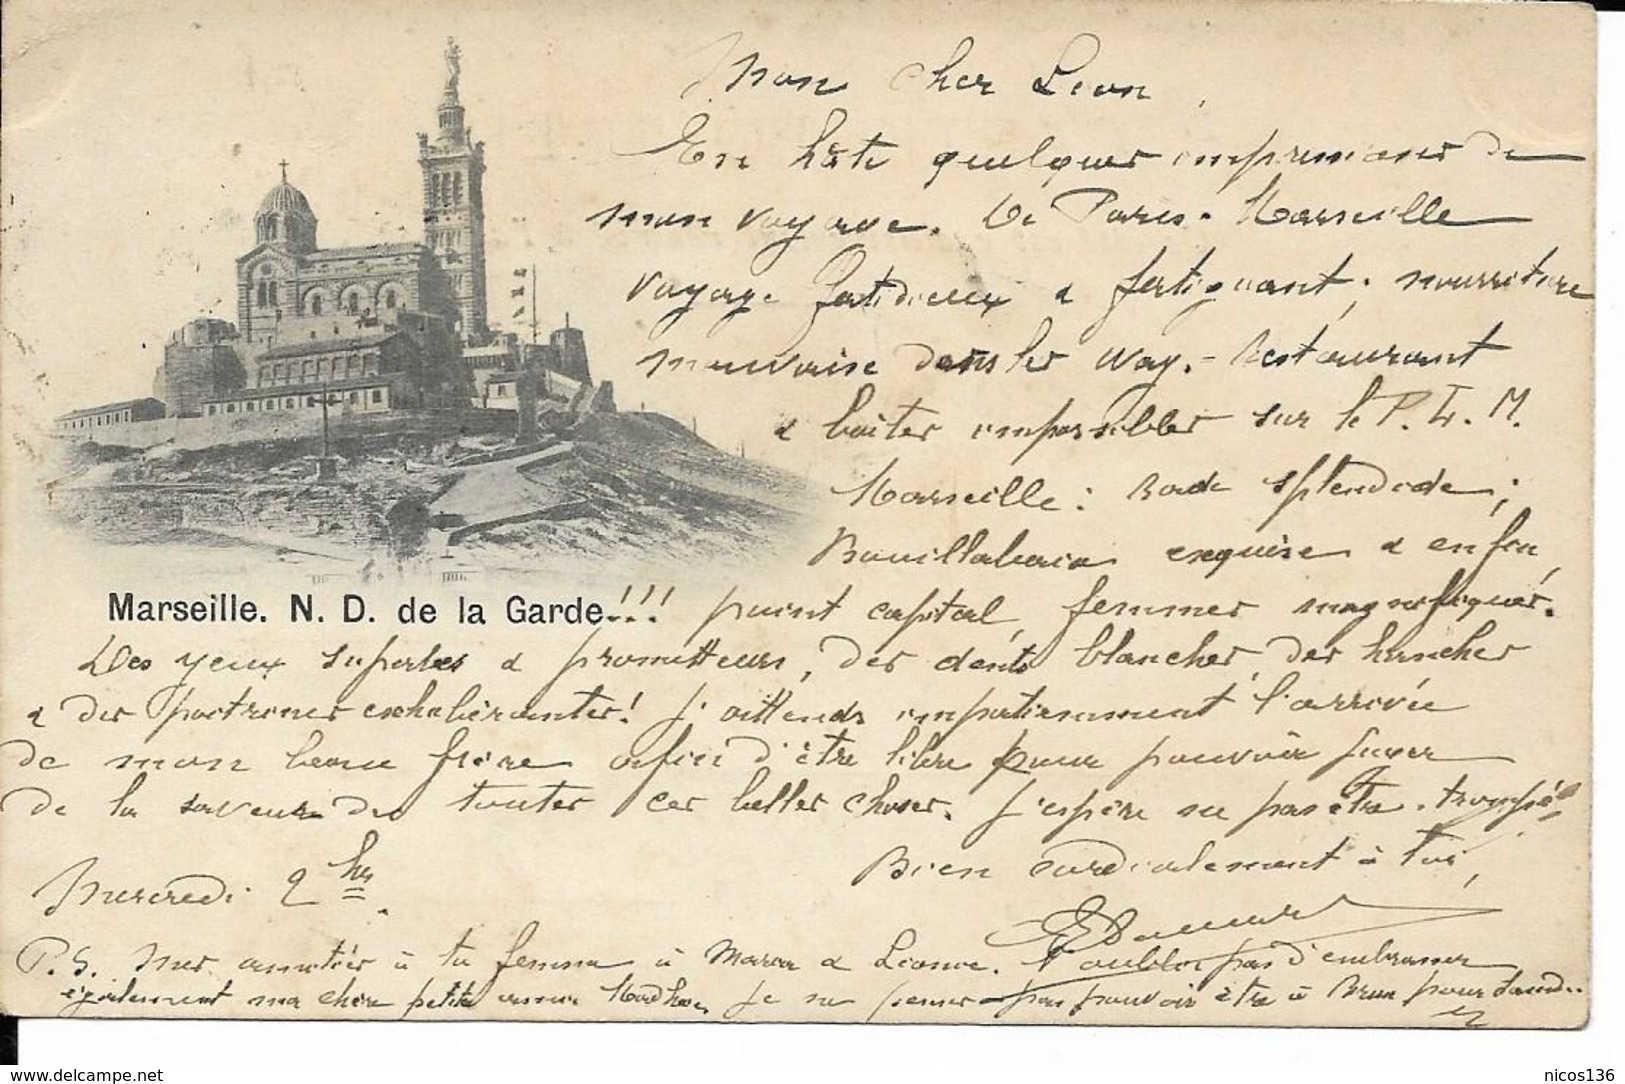 Mon cher Léon,
En hâte quelques impressions de
mon voyage. De Paris-Marseille
voyage fastidieux & fatiguant; nourriture
mauvaise dans les wag.-restaurant
& boîtes impossibles sur le P.L.M.
Marseille: rade splendide;
Bouillabaise exquise & enfin,
Marseille. N. D. de la Garde!!! point capital, femmes magnifiques.
Des yeux superbes & prometteurs, des dents blanches, des hanches
& des poitrines exhubérantes! J'attends impatiemment l'arrivée
de mon beau frère afin d'être libre pour pouvoir juger
de la saveur de toutes ces belles choses. J'espère ne pas être trompé!
Bien cordialement à toi,
Mercredi 2 hrs.
P.S. Mes amitiés à ta femme à & Léonce. N'oublie pas d'embrasser
également ma chère petite amie Je ne pense pas pouvoir être à pour
nicos136